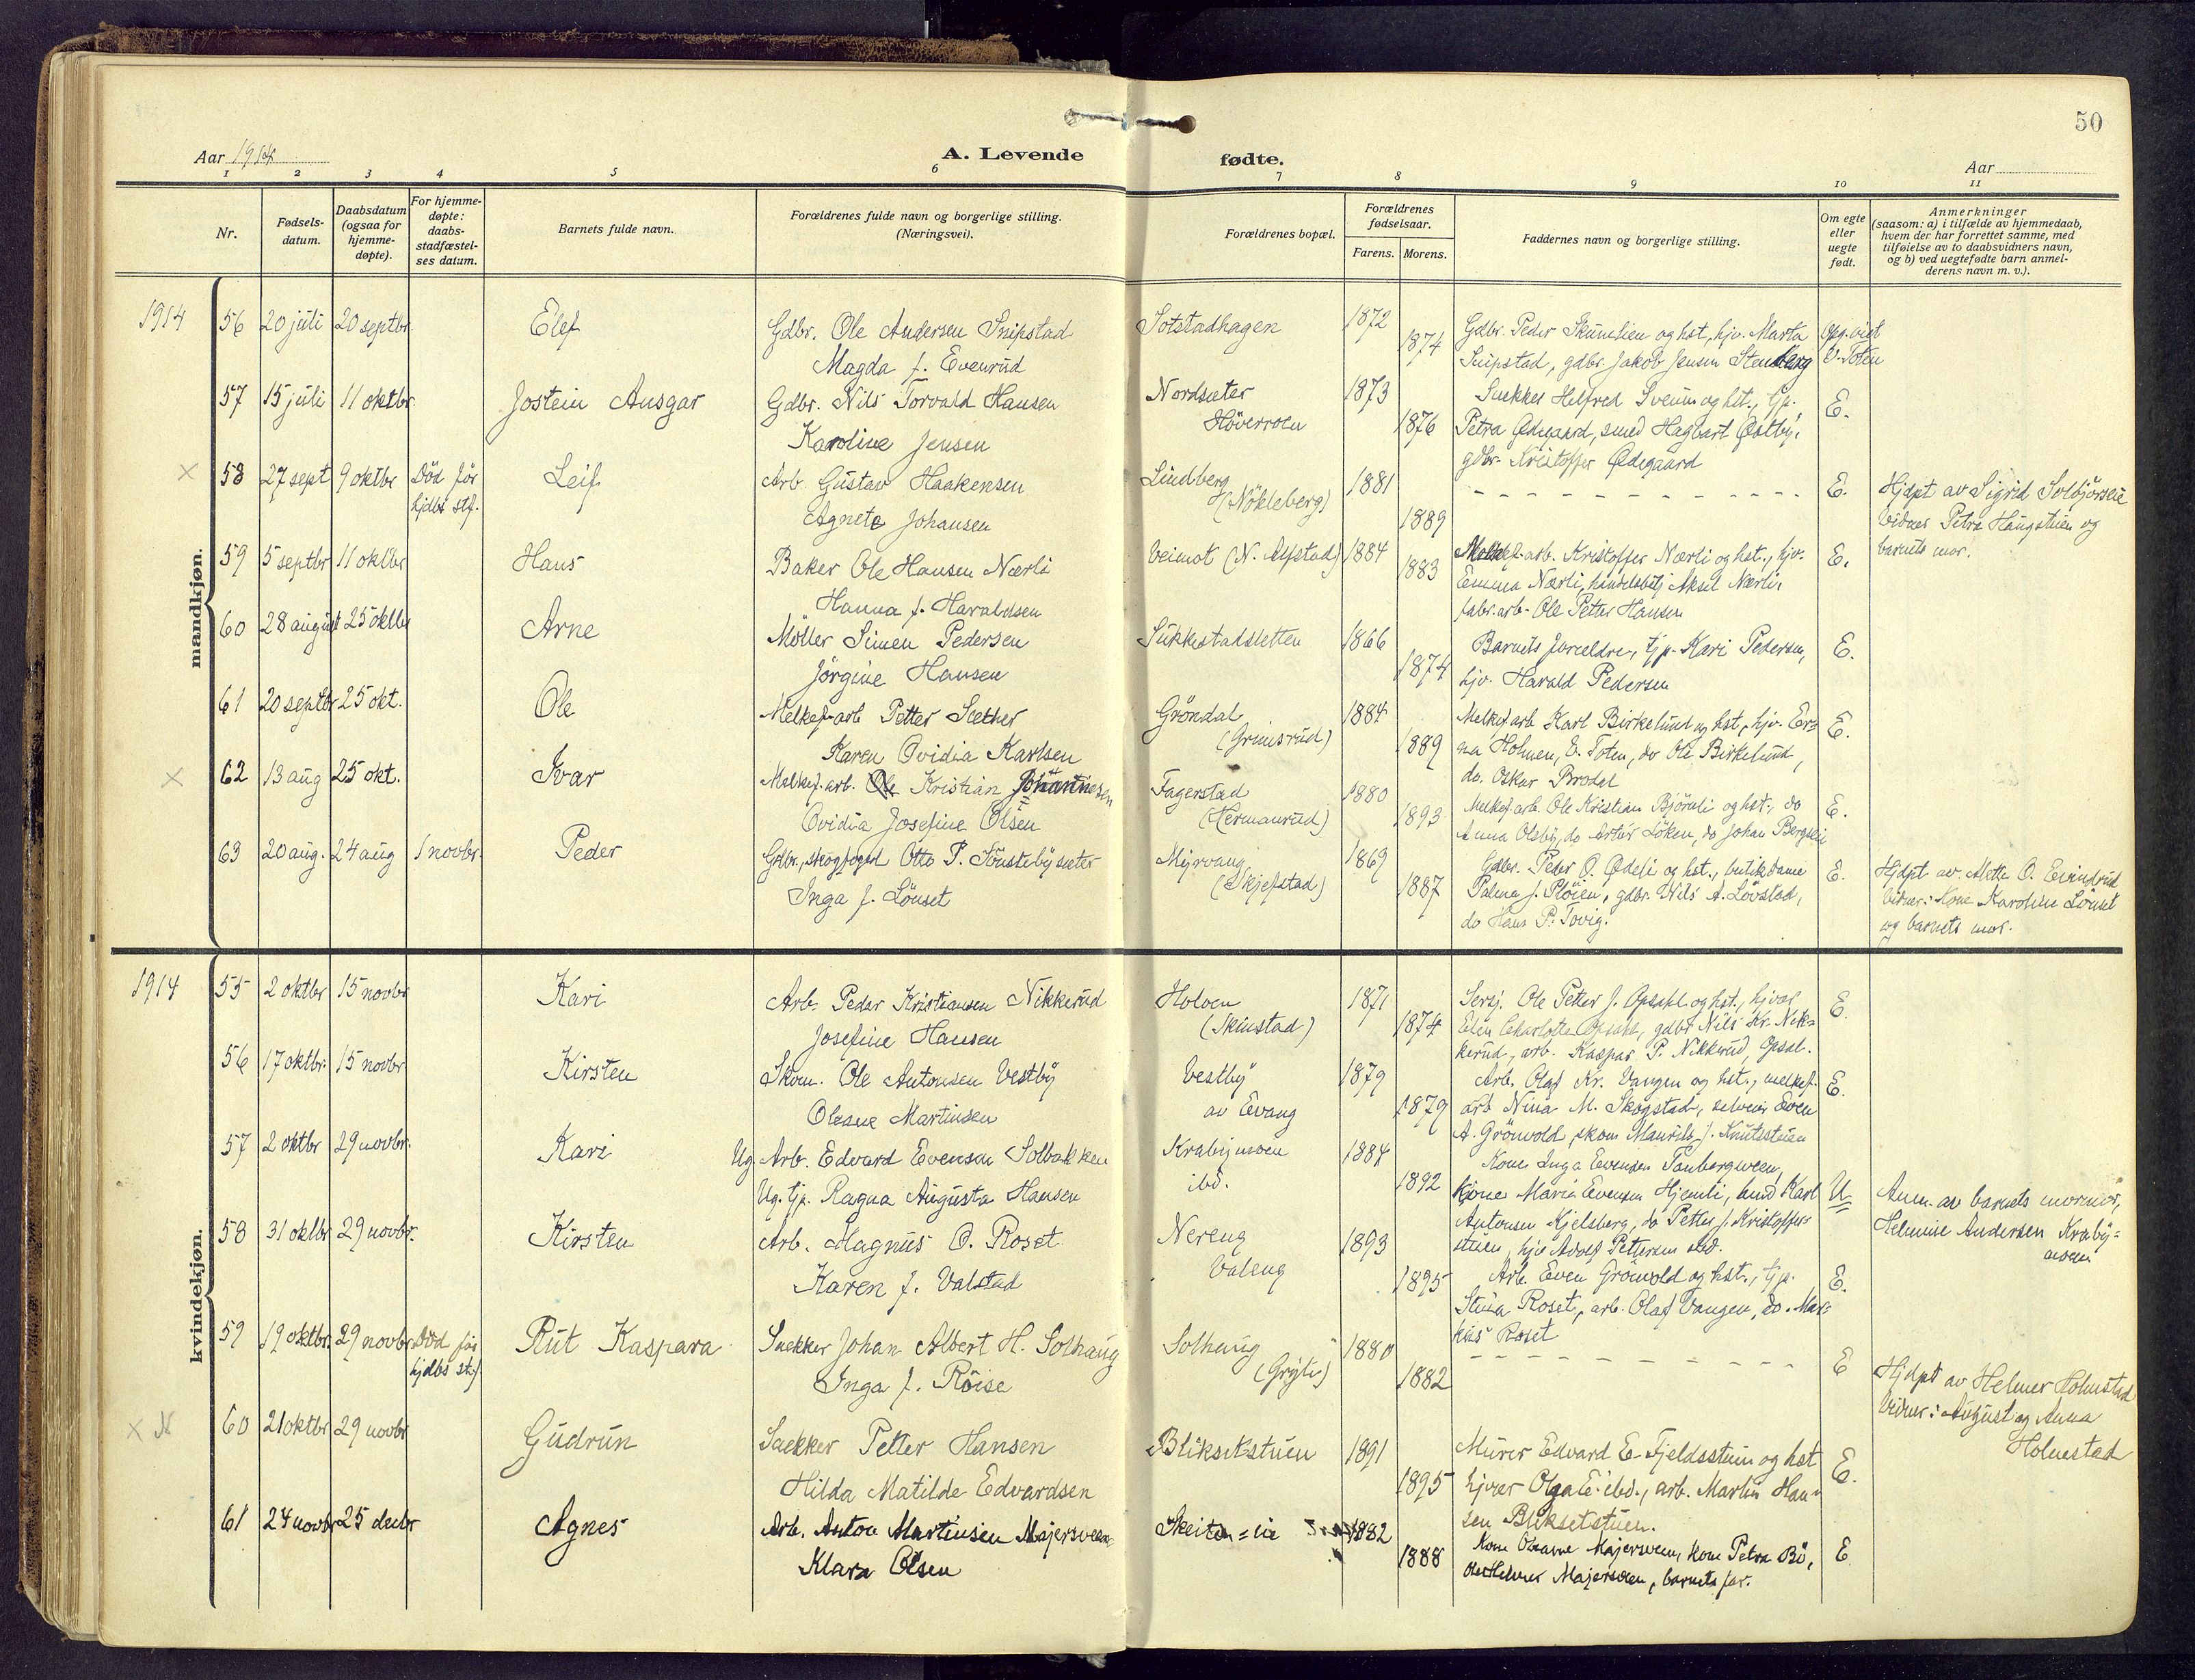 50
Aar 1914
A. Levende fødte.
Aar
1 2 3 4 5 6 7 8 9 10 11
Nr.
Fødsels-datum.
Daabsdatum (ogsaa for hjemme-døpte).
For hjemme-døpte: daabs-stadfæstel-ses datum.
Barnets fulde navn.
Forældrenes fulde navn og borgerlige stilling. (Næringsvei).
Forældrenes bopæl.
Forældrenes fødselsaar.
Farens. Morens.
Faddernes navn og borgerlige stilling.
Om egte eller uegte født.
Anmerkninger
(saasom: a) i tilfælde av hjemmedaab,
hvem der har forrettet samme, med
tilføielse av to daabsvidners navn,
og b) ved uegtefødte barn anmel-
derens navn m. v.).
mandkjøn.
1914 56 20 juli 20 septbr. Elef Gdbr. Ole Andersen Snipstad Sotstadhagen 1872 Gdbr. Peder Skumlien og hst, hjv. Marta
Magda f. Evenrud 1874 Snipstad, gdbr. Jakob Jensen Stenberg V. Toten
57 15 juli 11 oktbr. Jostein Ansgar Gdbr. Nils Torvald Hansen Nordsæter 1873 Snekker Helfred Sveum og hst., tjp. E.
Karoline Jensen Höverroen 1876 Petra Ødegaard, smed Hagbart Østby,
gdbr. Kristoffer Ødegaard
58 27 sept 9 oktbr Död för hjdbs stf. Leif Arb. Gustav Haakensen Lindberg 1881 E. Hjdpt av Sigrid Solbjörslie
Agnete Johansen (Nökleberg) 1889 Vidner Petra Haugstuen og
barnets mor.
59 5 septbr 11 oktbr Hans Baker Ole Hansen Nærli Veimot (N. Alfstad) 1884 arb. Kristoffer Nærli og hst., hjv. E.
Hanna f. Haraldsen 1883 Emma Nærli, handelsbetj Aksel Nærli,
fabr. arb. Ole Petter Hansen
60 28 august 25 oktbr Arne Möller Simen Pedersen Sukkestadsletten 1866 Barnets forældre, tjp. Kari Pedersen, E.
Jörgine Hansen 1874 hjv. Harald Pedersen
61 20 septbr 25 okt. Ole Melkef. arb Petter Sæther Gröndal 1884 Melkef. arb Karl Birkelund og hst, hjv. Er= E.
Karen Ovidia Karlsen (Grimsrud) 1889 na Holmen, V. Toten, do Ole Birkelund,
do. Oskar Brodal
62 13 aug 25 okt. Ivar Melkef. arb. Ole Kristian Johannesen Fagerstad 1880 Melkef. arb. Ole Kristian Björnli og hst., do E.
Ovidia Josefine Olsen (Hermanrud) 1893 Anna Olsby, do Artur Löken, do Johan Bergslie
63 20 aug. 24 aug 1 novbr. Peder Gdbr., skogfoged Otto P. Tönstebysæter Myrvang 1869 Gdbr. Peder O. Ødefi og hst., butikdame E. Hjdpt av Mette O. Evindrud
Inga f. Lönset (Skjefstad) 1887 Palma J. Plöien, gdbr. Nils A. Lövstad, Vidner: Kone Karoline Lönset
do Hans P. Tovig. og barnets mor.
kvindekjøn.
1914 55 2 oktbr 15 novbr Kari Arb. Peder Kristiansen Nikkerud Holven 1871 Sersj. Ole Petter J. Opsahl og hst., hjvar E.
Josefine Hansen (Skinstad) 1874 Elen Charlotte Opsahl, gdbr Nils Kr. Nik=
kerud, arb. Kaspar P. Nikkerud, Opsal.
56 17 oktbr. 15 novbr. Kirsten Skom. Ole Antonsen Vestby Vestby 1879 Arb. Olaf Kr. Vangen og hst., melkef. E.
Oleane Martinsen av Evang 1879 arb Nina M. Skogstad, selveier Even
A. Grönvold, skom Maurits J. Knutsstuen
57 2 oktbr 29 novbr. Kari Ug. Arb. Edvard Evensen Solbakken Krabymoen 1884 Kone Inga Evensen Tonbergsveen,
Ug. tjp. Ragna Augusta Hansen ibd. 1892 kone Maria Evensen Hjemli, hmd Karl U Anm. av barnets mormor,
Antonsen Kjelsberg, do Petter J. Kristoffer= Helmine Andersen Kraby=
stuen, hjv Adolf Pettersen sted. moen
58 31 oktbr 29 novbr. Kirsten Arb. Magnus O. Roset Nereng 1893 Arb. Even Grönvold og hst., tjp. E.
Karen f. Valstad Valeng 1895 Stina Roset, arb. Olaf Vangen, do. Mar=
kus Roset
59 19 oktbr. 29 novbr. Död för hjdbs stf. Rut Kaspara Snekker Johan Albert H. Solhaug Solhaug 1880 E Hjdpt av Helmer Holmstad
Inga f. Röise (Gryte) 1882 Vidner: August og Anna
Holmestad
60 21 oktbr 29 novbr Gudrun Snekker Petter Hansen Bliksetstuen 1891 Murer Edvard E. Fjeldsstuen og hst E.
Hilda Matilde Edvardsen 1895 hjvær Olga E. ibd., arb. Martin Han=
sen Bliksetstuen.
61 24 novbr 25 decbr Agnes Arb. Anton Martinsen Majersveen 1882 Kone Oleane Majersveen, kone Petra Bö, E
Klara Olsen 1888 Helmer Majersveen, barnets far.